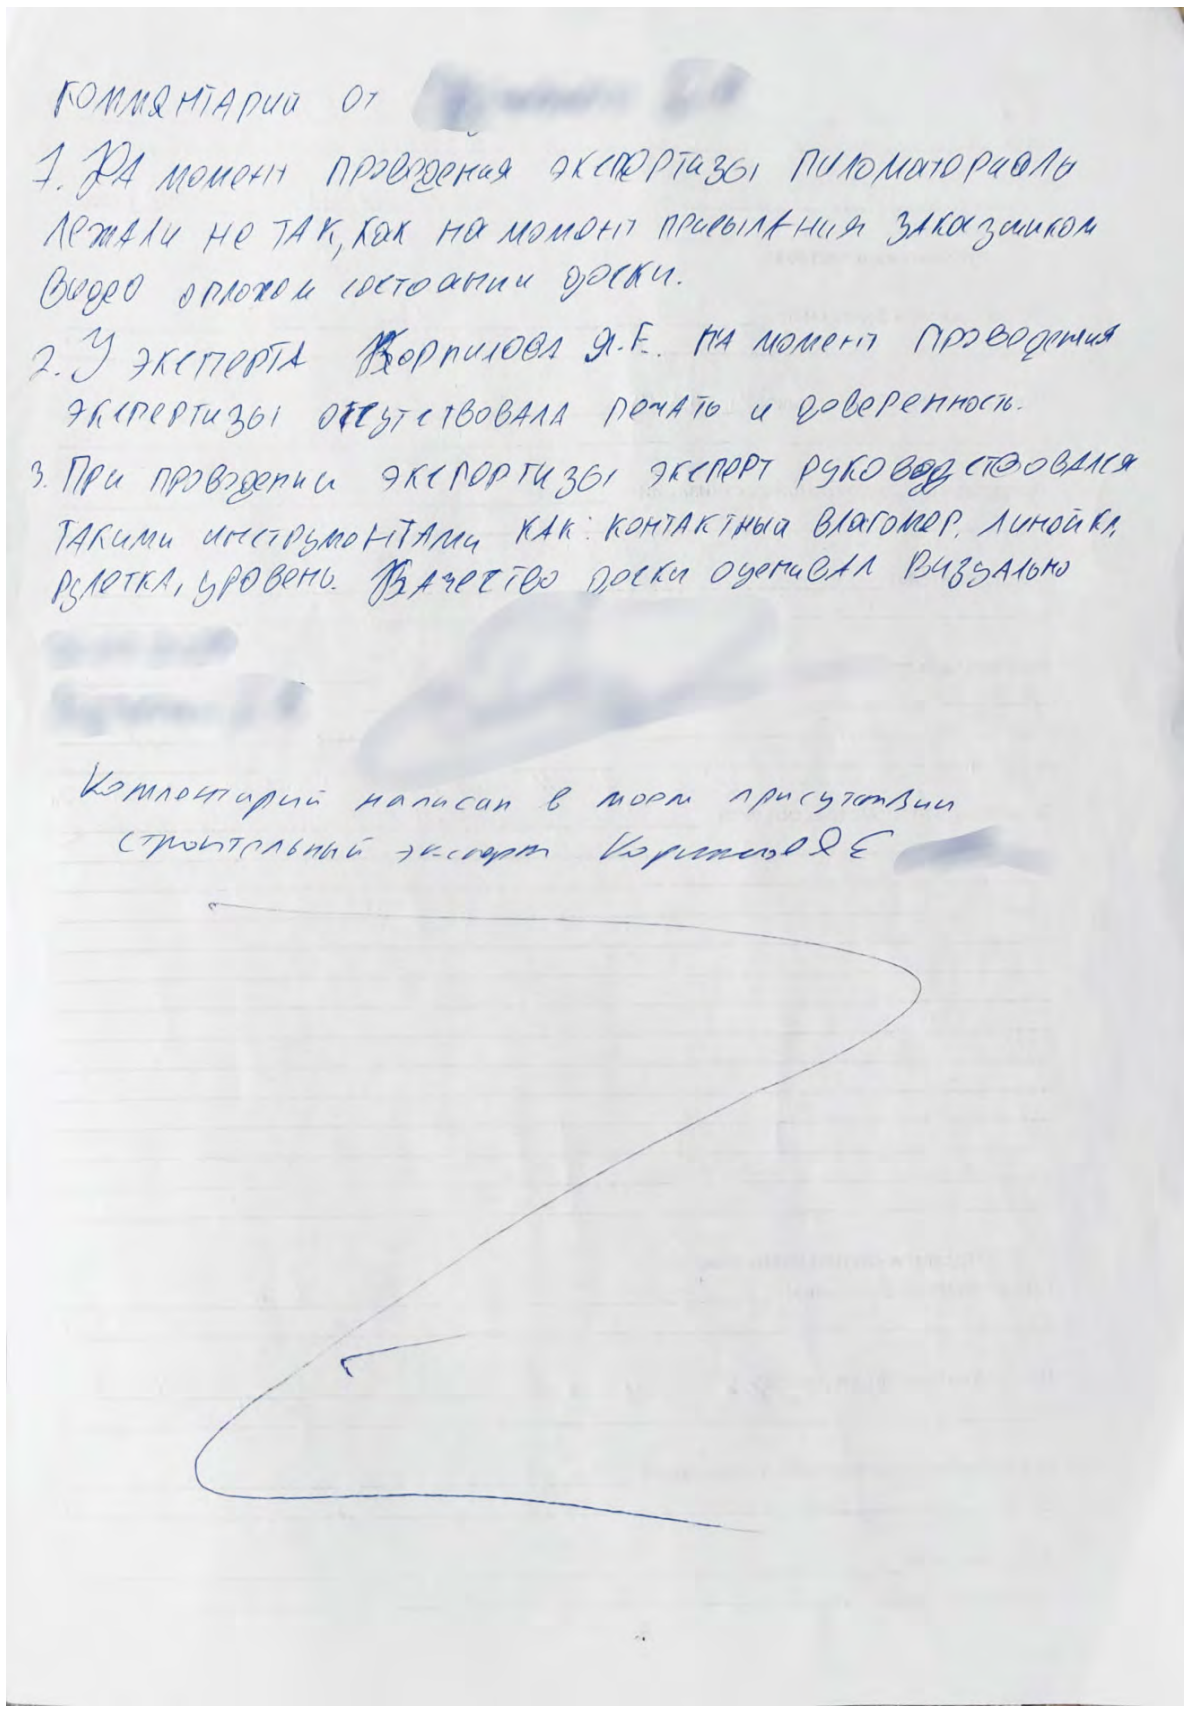 комментарий от
1. На момент проведения экспертизы пиломаториалы
лежали не так, как на момент присылания заказчиком
видео о плохом состоянии доски.
2. У эксперта Корпилова Я.Е. на момент проведения
экспертизы отсутствовала печать и доверенность.
3. При проведении экспортизы эксперт руководствовался
такими инструментами как: контактный влагомер, линойка,
рулетка, уровень. Качество доски оценивал визуально
Комментарий написан в моем присутствии
строительный эксперт Я Е